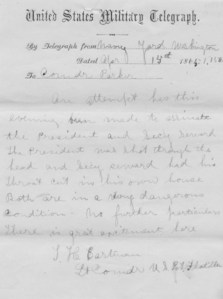 United States Military Telegraph.
By Telegraph from Navy Yard Washington
Dated Apl 15th 186
To Comdr Parker
An attempt has this
evening been made to
the President and Secy Seward
The President was shot through the
head and Secy Seward had his
throat cut in his own house
Both are in a very dangerous
condition - No further particulars
There is great excitement here
T H Eastman
Lt Comdr U.S.N. Flotilla